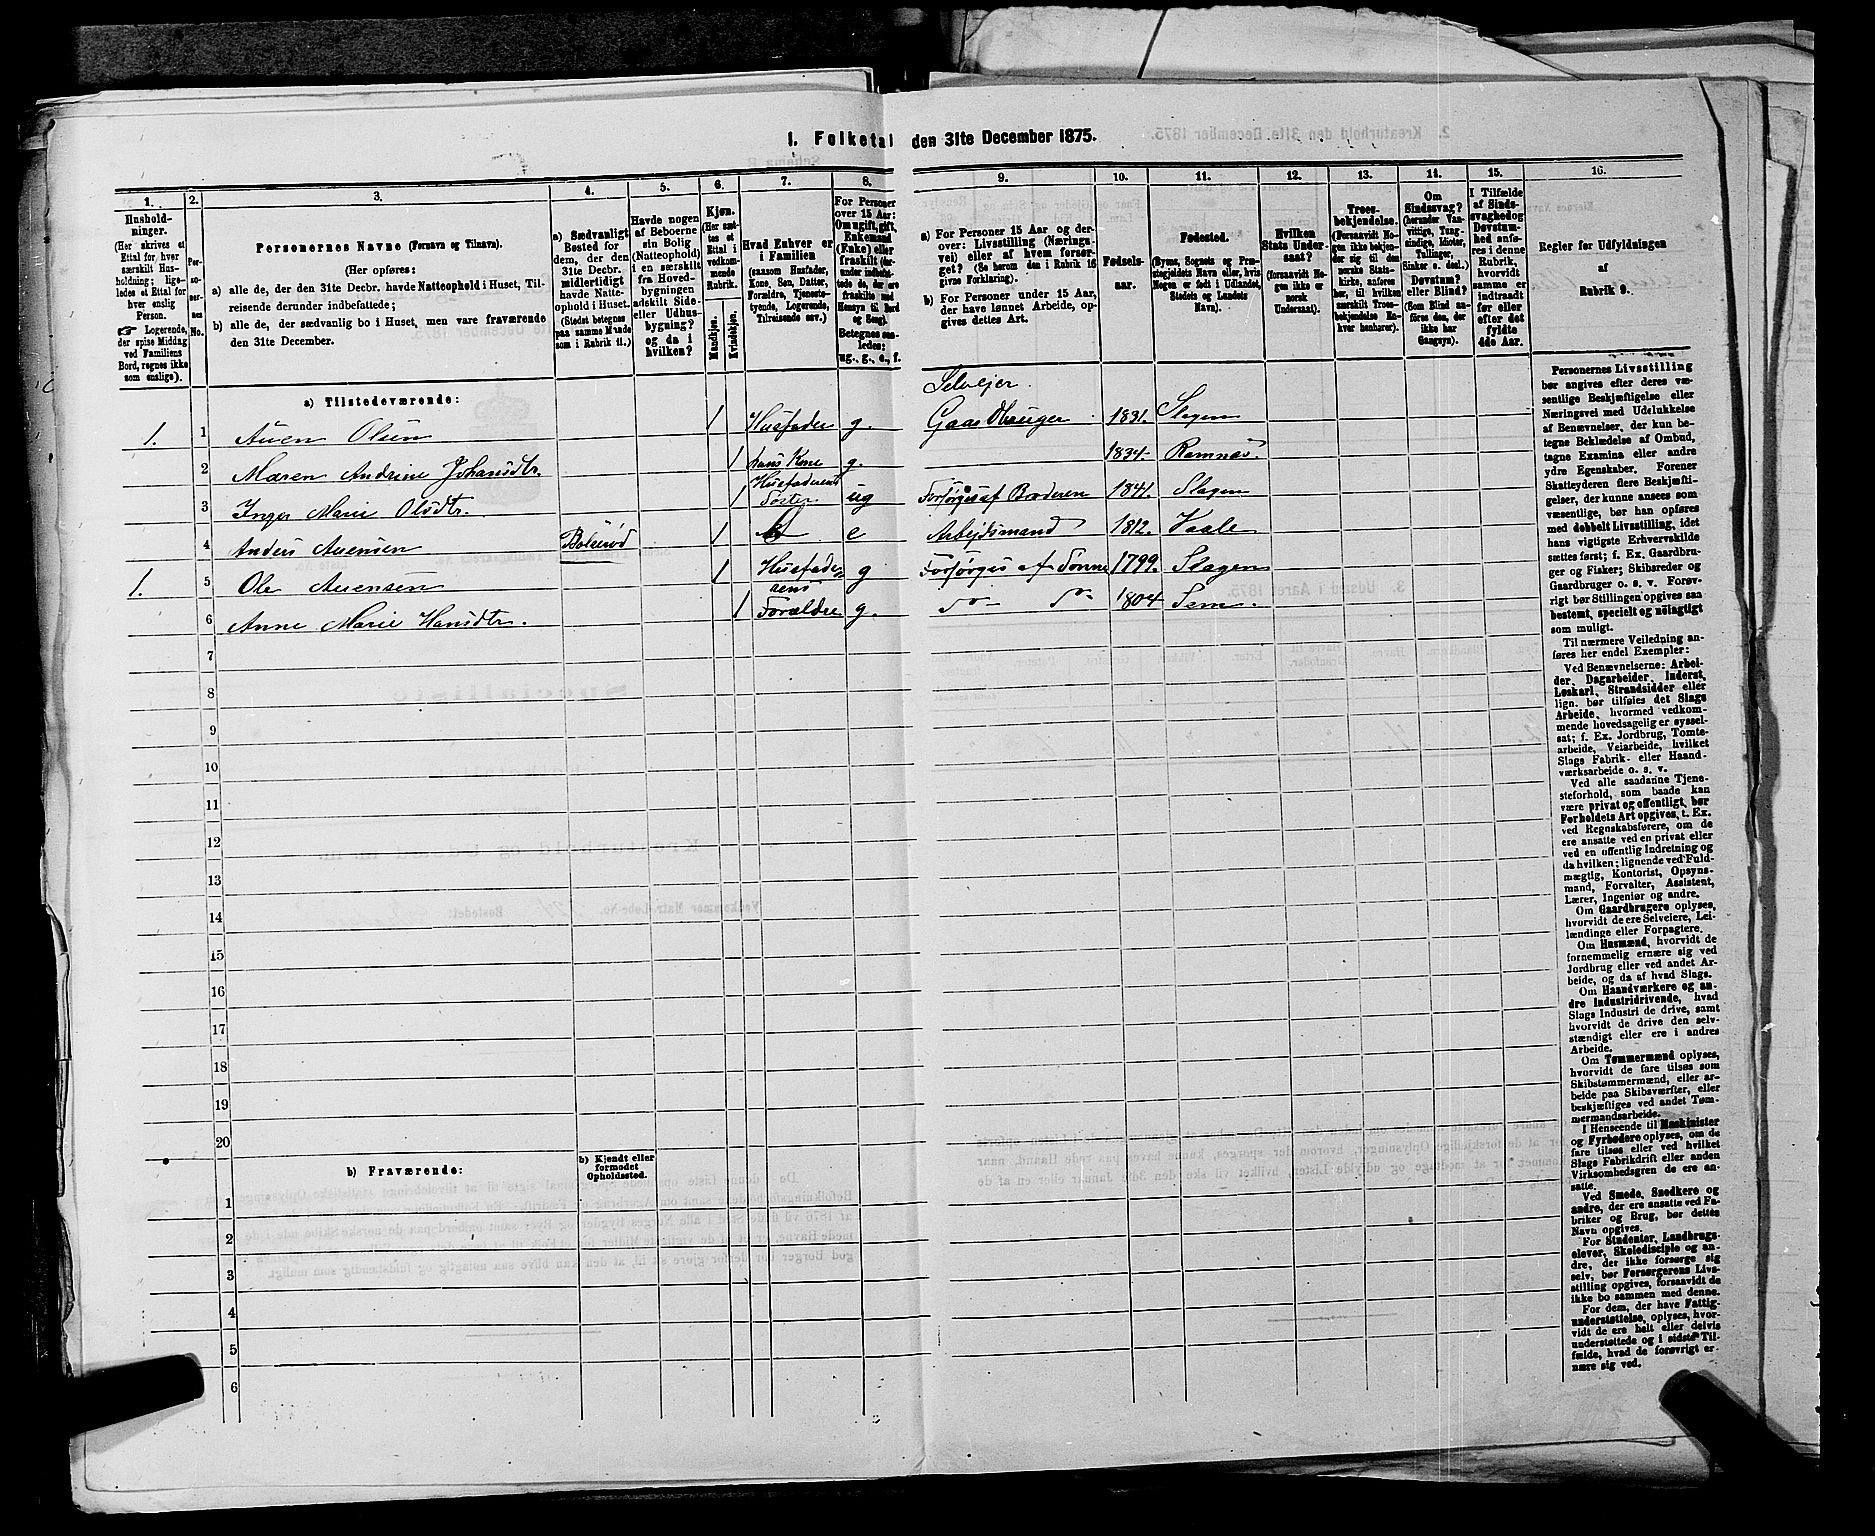 1. Folketal den 31te December 1875.
1.
Hushold-
ninger.
(Her skrives et
Ettal for hver
særskilt Hus-
holdning; lige-
ledes et Ettal for
hver enslig
Person.
☞ Logerende,
der spise Middag
ved Familiens
Bord, regnes ikke
som enslige).
2.
Per-
so-
ner-
nes
No.
3.
Personernes Navne (Fornavn og Tilnavn).
(Her opføres:
a) alle de, der den 31te Decbr. havde Natteophold i Huset, Til-
reisende derunder indbefattede;
b) alle de, der sædvanlig bo i Huset, men vare fraværende
den 31te December.
4.
a) Sædvanligt
Bosted for
dem, der den
31te Decbr.
midlertidigt
havde Natte-
ophold i Huset.
(Stedet betegnes
paa samme Maade
som i Rubrik 11.)
5.
Havde nogen
af Beboerne
sin Bolig
(Natteophold)
i en særskilt
fra Hoved-
bygningen
adskilt Side-
eller Udhus-
bygning?
og da i
hvilken?
6.
Kjøn.
(Her sæt-
tes et
Ettal i
vedkom-
mende
Rubrik.
Mandkjøn.
Kvindekjøn.
7.
Hvad Enhver er
i Familien
(saasom Husfader,
Kone, Søn, Datter,
Forældre, Tjeneste-
tyende, Logerende,
Tilreisende osv.)
8.
For Personer
over 15 Aar:
Om ugift, gift,
Enkemand
(Enke) eller
fraskilt (her-
under indbefat-
tede de, der ere
fraskilte med
Hensyn til Bord
og Seng).
Betegnes saa-
ledes:
ug., g., e., f.
9.
a) For Personer 15 Aar og der-
over: Livsstilling (Nærings-
vei) eller af hvem forsør-
get? (Se herom den i Rubrik 16
givne Forklaring).
b) For Personer under 15 Aar,
der have lønnet Arbejde, op-
gives dettes Art.
10.
Fødsels-
aar.
11.
Fødested.
(Byens, Sognets og Præ-
stegjeldets Navn eller, hvis
Nogen er født i Udlandet,
Stedets og Landets
Navn).
12.
Hvilken
Stats Under-
saat?
(forsaavidt No-
gen ikke er
norsk
Undersaat).
13.
Troes-
bekjendelse.
(Forsaavidt No-
gen ikke bekjen-
der sig til den
norske Stats-
kirke, anføres
her, til hvilken
særskilt Troes-
bekjendelse En-
hver henhører).
14.
Om
Sindssvag?
(herunder Van-
vittige, Tung-
sindige, Idioter,
Tullinger,
Sinker o. desl.)
Døvstum?
eller Blind?
(Som Blind an-
føres den, der
ikke har
Gangsyn).
15.
I Tilfælde
af Sinds-
svaghed og
Døvstum-
hed anfø-
res i denne
Rubrik,
hvorvidt
samme er
indtraadt
før eller
efter det
fyldte
4de Aar.
16.
Regler for Udfyldningen
af
Rubrik 9.
a) Tilstedeværende:
Selvejer
1. 1 Auen Olsen 1 Husfader g. Gaardbruger 1831. Slagen
2 Maren Andrine Johansdtr. 1 hans Kone g. 1834. Ramnæs.
3 Inger Marie Olsdtr. 1 Husfaderens Søster ug Forsørges af Broderen 1841. Slagen
4 Anders Auensen 1 e Arbejdsmand 1812. Vaale
1. 5 Ole Auensen 1 Husfade- g Forsørges af Sønne 1799. Slagen
6 Anne Marie Hansdtr. 1 rens Forældre g. do do 1804 Sem.
7
8
9
10
11
12
13
14
15
16
17
18
19
20
b) Fraværende:
b) Kjendt eller
formodet
Opholdssted.
1
2
3
4
5
6
Personernes Livsstilling
bør angives efter deres væ-
sentlige Beskjæftigelse eller
Næringsvei med Udelukkelse
af Benævnelser, der kun be-
tegne Beklædelse af Ombud,
tagne Examina eller andre
ydre Egenskaber. Forener
Skatteyderen flere Beskjæfti-
gelser, der kunne ansees som
væsentlige, bør han opføres
med dobbelt Livsstilling, idet
hans vigtigste Erhvervskilde
sættes først; f. Ex. Gaardbru-
ger og Fisker; Skibsreder og
Gaardbruger o. s. v. Forøv-
rigt bør Stillingen opgives saa
bestemt, specielt og nøiagtigt
som muligt.
Til nærmere Veiledning an-
føres her endel Exempler:
Ved Benævnelserne: Arbei-
der, Dagarbeider, Inderst,
Løskarl, Strandsidder eller
lign. bør tilføies det Slags
Arbeide, hvormed vedkom-
mende hovedsagelig er syssel-
sat; f. Ex. Jordbrug, Tomte-
arbeide, Veiarbeide, hvilket
Slags Fabrik- eller Haand-
værksarbeide o. s. v.
Ved alle saadanne Tjene-
steforhold, som baade kan
være privat og offentligt, bør
Forholdets Art opgives, t. Ex.
ved Regnskabsførere, om de
ere ansatte ved en privat eller
ved en offentlig Indretning og
da hvilken; lignende ved Fuld-
mægtig, Kontorist, Opsyns-
mand, Forvalter, Assistent,
Lærer, Ingeniør og andre.
Om Gaardbrugere oplyses,
hvorvidt de ere Selveiere, Lei-
lændinge eller Forpagtere.
Om Husmænd, hvorvidt de
fornemmelig ernære sig ved
Jordbrug eller ved andet Ar-
beide, og da af hvad Slags.
Om Haandværkere og an-
dre Industridrivende, hvad
Slags Industri de drive, samt
hvorvidt de drive den selv-
stændigt eller ere i andres
Arbeide.
Om Tømmermænd oplyses,
hvorvidt de fare tilsøs som
Skibstømmermænd, eller ar-
beide paa Skibsværfter, eller
beskjæftiges ved andet Tøm-
mermandsarbeide.
I Henseende til Maskinister
og Fyrbødere oplyses, om de
fare tilsøs eller ved hvilket
Slags Fabrikdrift eller anden
Virksomhedsgren de ere an-
satte.
Ved Smede, Snedkere og
andre, der ere ansatte ved Fa-
briker og Brug, bør dettes
Navn opgives.
For Studenter, Landbrugs-
elever, Skoledisciple og an-
dre, der ikke forsørge sig
selv, bør Forsørgerens Livs-
stilling opgives, forsaavidt de
ikke bo sammen med denne.
For dem, der have Fattig-
understøttelse, oplyses, hvor-
vidt de ere helt eller delvis
understøttede og i sidste Til-
fælde, hvad de forøvrigt er-
nære sig ved.